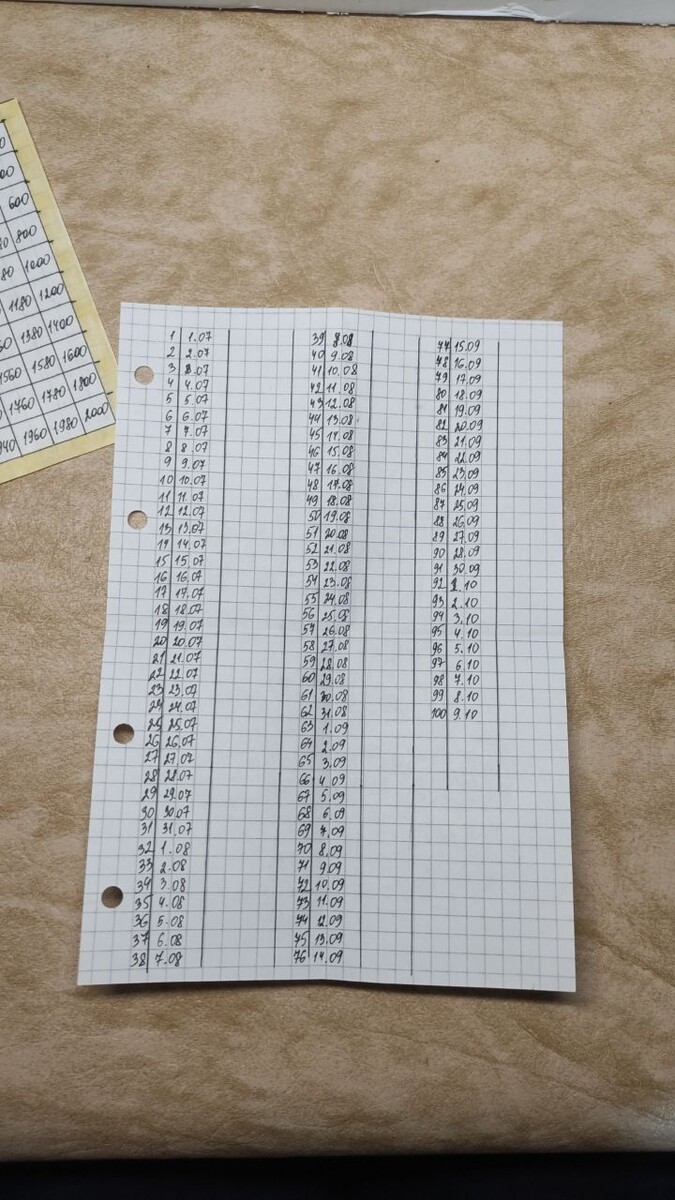 600
800
1000
1180 1200
1380 1400
1560 1580 1600
1760 1780 1800
1960 1980 2000
1 1.07
2 2.07
3 3.07
4 4.07
5 5.07
6 6.07
7 7.07
8 8.07
9 9.07
10 10.07
11 11.07
12 12.07
13 13.07
14 14.07
15 15.07
16 16.07
17 17.07
18 18.07
19 19.07
20 20.07
21 21.07
22 22.07
23 23.07
24 24.07
25 25.07
26 26.07
27 27.07
28 28.07
29 29.07
30 30.07
31 31.07
32 1.08
33 2.08
34 3.08
35 4.08
36 5.08
37 6.08
38 7.08
39 8.08
40 9.08
41 10.08
42 11.08
43 12.08
44 13.08
45 14.08
46 15.08
47 16.08
48 17.08
49 18.08
50 19.08
51 20.08
52 21.08
53 22.08
54 23.08
55 24.08
56 25.08
57 26.08
58 27.08
59 28.08
60 29.08
61 30.08
62 31.08
63 1.09
64 2.09
65 3.09
66 4.09
67 5.09
68 6.09
69 7.09
70 8.09
71 9.09
72 10.09
73 11.09
74 12.09
75 13.09
76 14.09
77 15.09
78 16.09
79 17.09
80 18.09
81 19.09
82 20.09
83 21.09
84 22.09
85 23.09
86 24.09
87 25.09
88 26.09
89 27.09
90 28.09
91 30.09
92 1.10
93 2.10
94 3.10
95 4.10
96 5.10
97 6.10
98 7.10
99 8.10
100 9.10